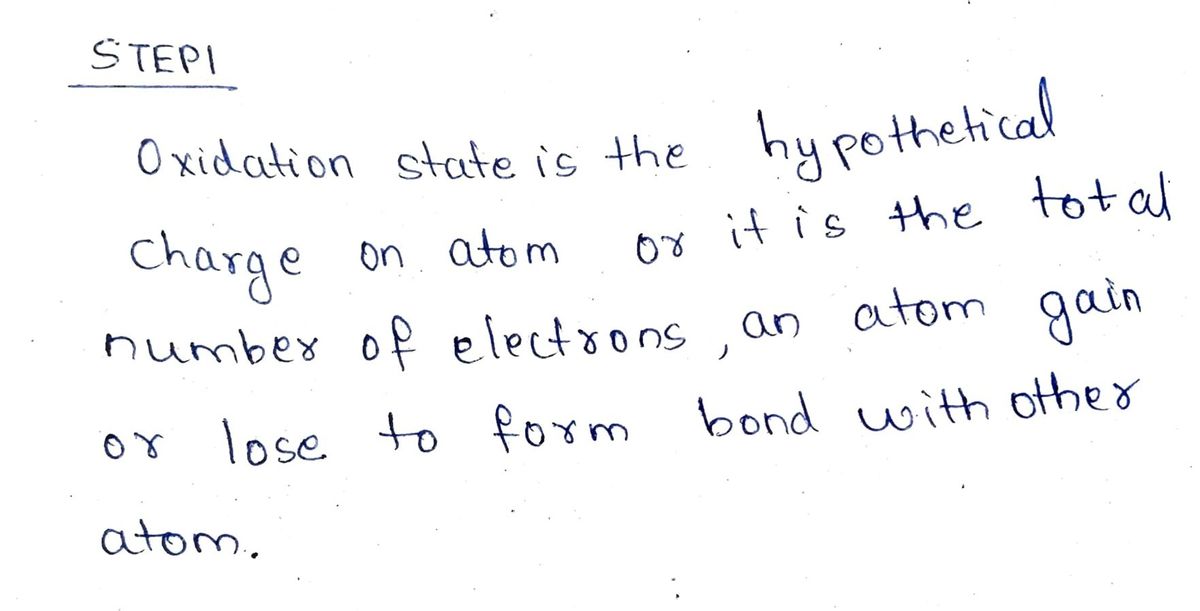 STEP1
Oxidation state is the hypothetical
charge on atom or it is the total
number of electrons, an atom gain
or lose to form bond with other
atom.